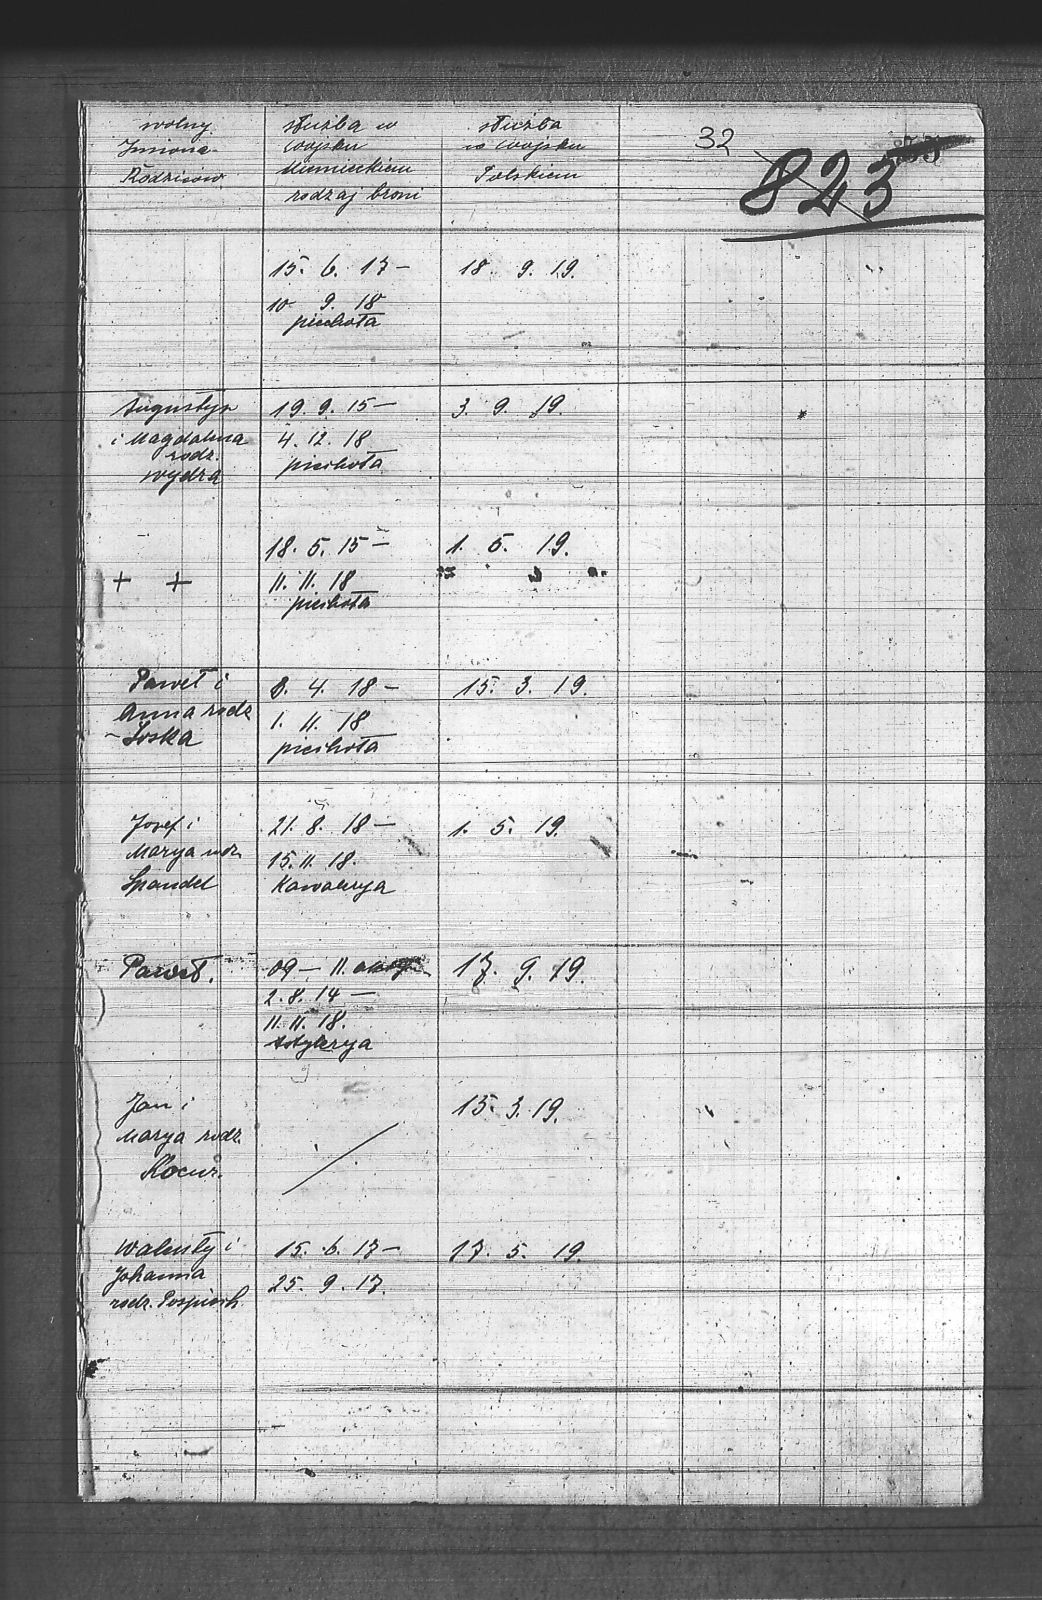 wolny
Imiona
Rodziców
służba w
wojsku
Niemieckiem
rodzaj broni
służba
w wojsku
Polskiem
32
823
15. 6. 17 –
18. 9. 19.
10 9. 18
piechota
Augustyn
i Magdalena
rodz.
Wydra
19. 9. 15 –
4. 12. 18
piechota
3. 9. 19.
+ +
18. 5. 15 –
11. 11. 18
piechota
1. 5. 19.
Paweł i
Anna rodz
Soska
8. 4. 18 –
1. 11. 18
piechota
15. 3. 19.
Josef i
Marya rodz.
Spandel
21. 8. 18 –
15. 11. 18.
Kawalerya
1. 5. 19.
Paweł.
09 – 11.
2. 8. 14 –
11. 11. 18.
Artylerya
17. 9. 19.
Jan i
Marya rodz.
Kocur.
15. 3. 19.
Walenty i
Johanna
rodz. Pospiech.
15. 6. 17 –
25. 9. 17.
17. 5. 19.